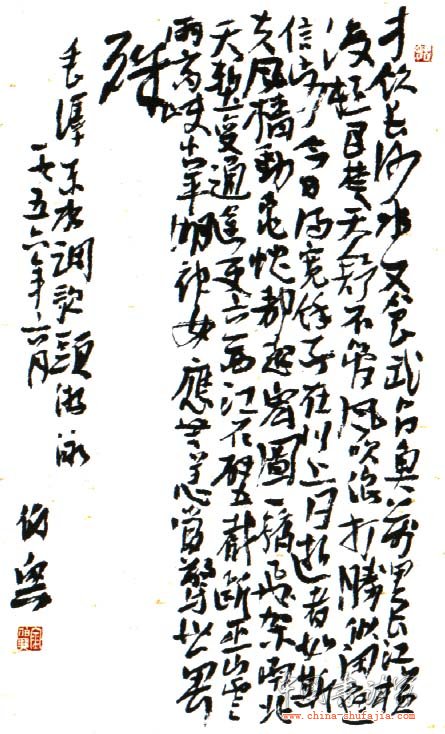 才饮长沙水又食武昌魚萬里长江横
渡极目楚天舒不管风吹浪打勝似闲庭
信步今日得寬馀子在川上曰逝者如斯
夫风樯動龟蛇静起宏圖一橋飞架南北
天堑变通途更立西江石壁截断巫山雲
雨高峡出平湖神女應无恙當驚世界
殊
毛澤东水调歌頭游泳
一九五六年六月
www.china-shufajia.com